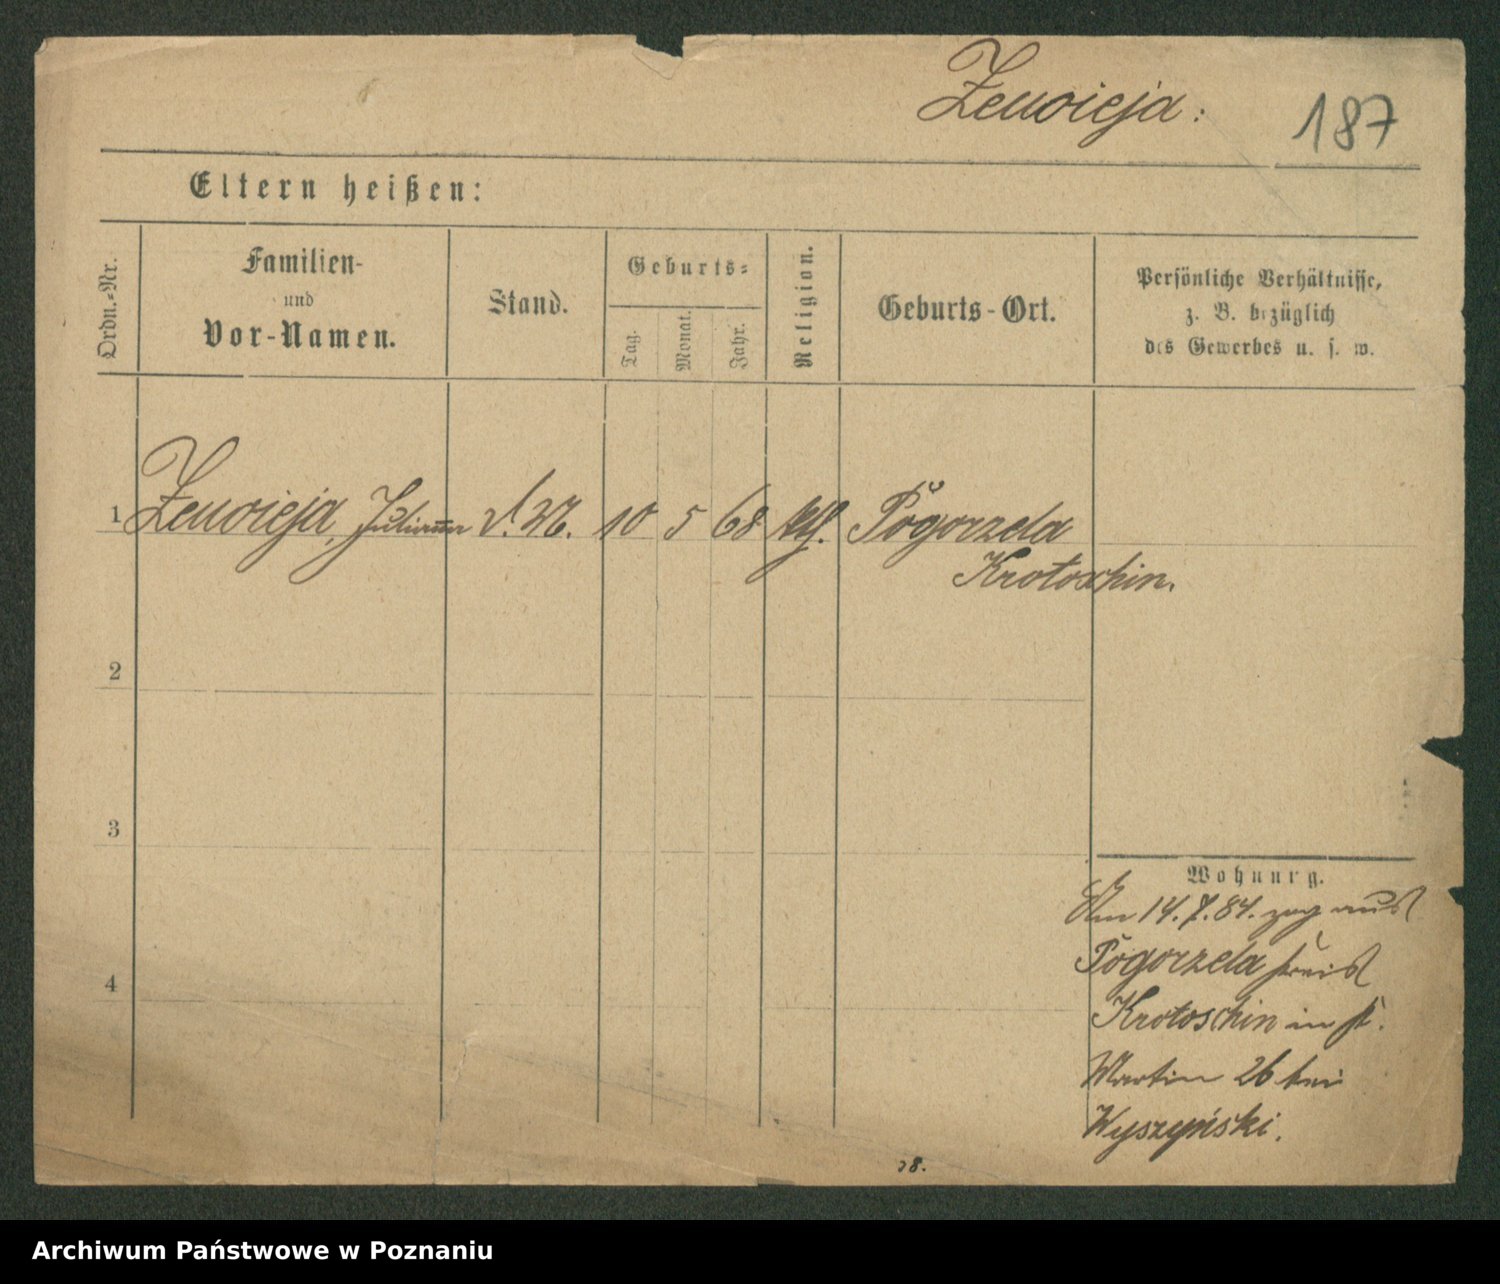 Zeuoieja:
187
Eltern heißen:
Ordn.=Nr.
Familien-
und
Vor-Namen.
Stand.
Geburts=
Tag.
Monat.
Jahr.
Religion.
Geburts-Ort.
Persönliche Verhältnisse,
z. B. bezüglich
des Gewerbes u. s. w.
1 Zeuoieja, Julianna d. M. 10 5 68 kth. Pogorzela
Krotoschin.
2
3
4
Wohnung.
Am 14. 7. 84. zog aus
Pogorzela Kreis
Krotoschin in St.
Martin 26 bei
Wyszyński.
38.
Archiwum Państwowe w Poznaniu